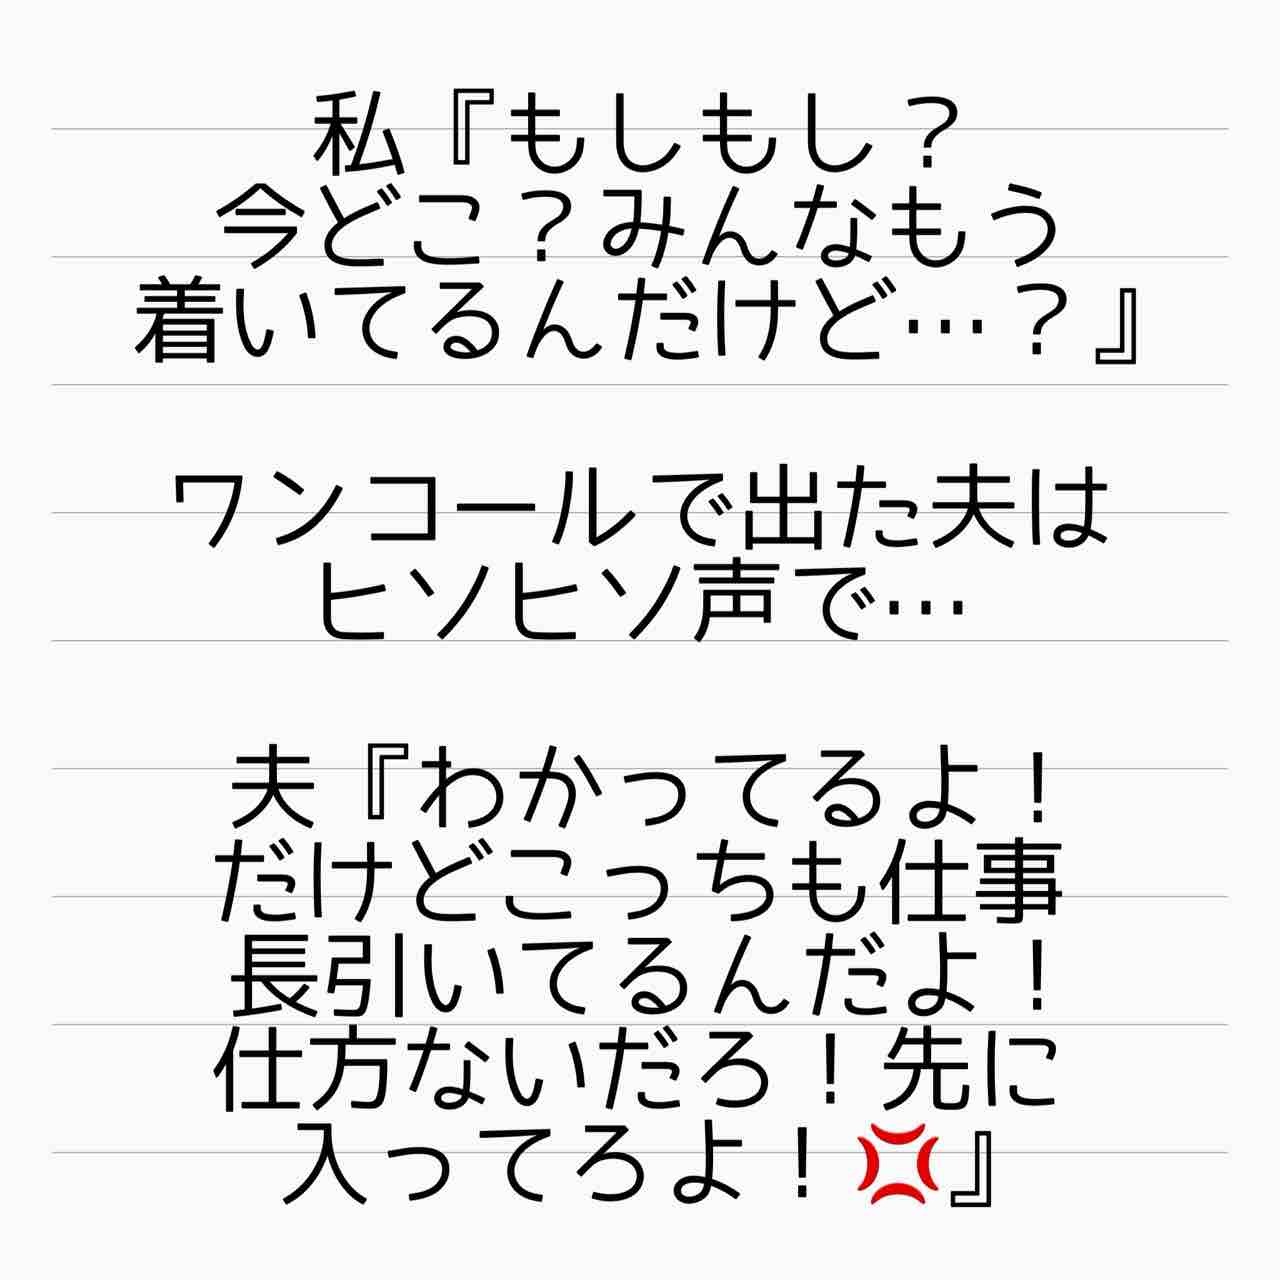 私『もしもし？
今どこ？みんなもう
着いてるんだけど…？』
ワンコールで出た夫は
ヒソヒソ声で…
夫『わかってるよ！
だけどこっちも仕事
長引いてるんだよ！
仕方ないだろ！先に
入ってろよ！💢』